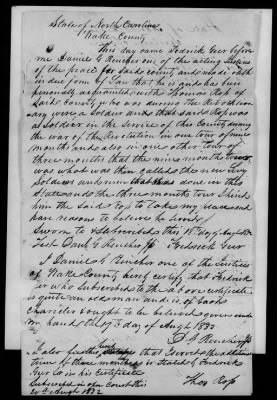 State of North Carolina
Wake County
This day came Fedrick Geer before
me Daniel G Rencher one of the acting Justices
of the peace for Said county and made oath
in due form of Law that he is and has been
personally acquainted with Thomas Rop of
Said County who was during the Revolution
ary were a Soldier and that said Rop was
a Soldier in the Service of this County during
the war of the Revolution in one tour of nine
months and also in one other tour of
three months that the nine months
was what was then called the new levy
Soldiers and him that was done in this
State and the three months tour I hired
him the said Rop to take my place and
have reasons to believe he served
Sworn to & Subscribed this 18 day of August
Test Danl G Rencher Jp Fedrick Geer
I Daniel G Rencher one of the Justices
of Wake County hereby certify that Fedrick
Geer who Subscribed to the above certificate
is quite an old man and is of Good
Character & ought to be believed given under
my hand this day of Augt 1832
D G Rencher Jp
I also further that I served the additional
time of three months as stated by Fedrick
Geer in his Certificate
Subscribed in open Court this
Augt 1832 Thos Rop